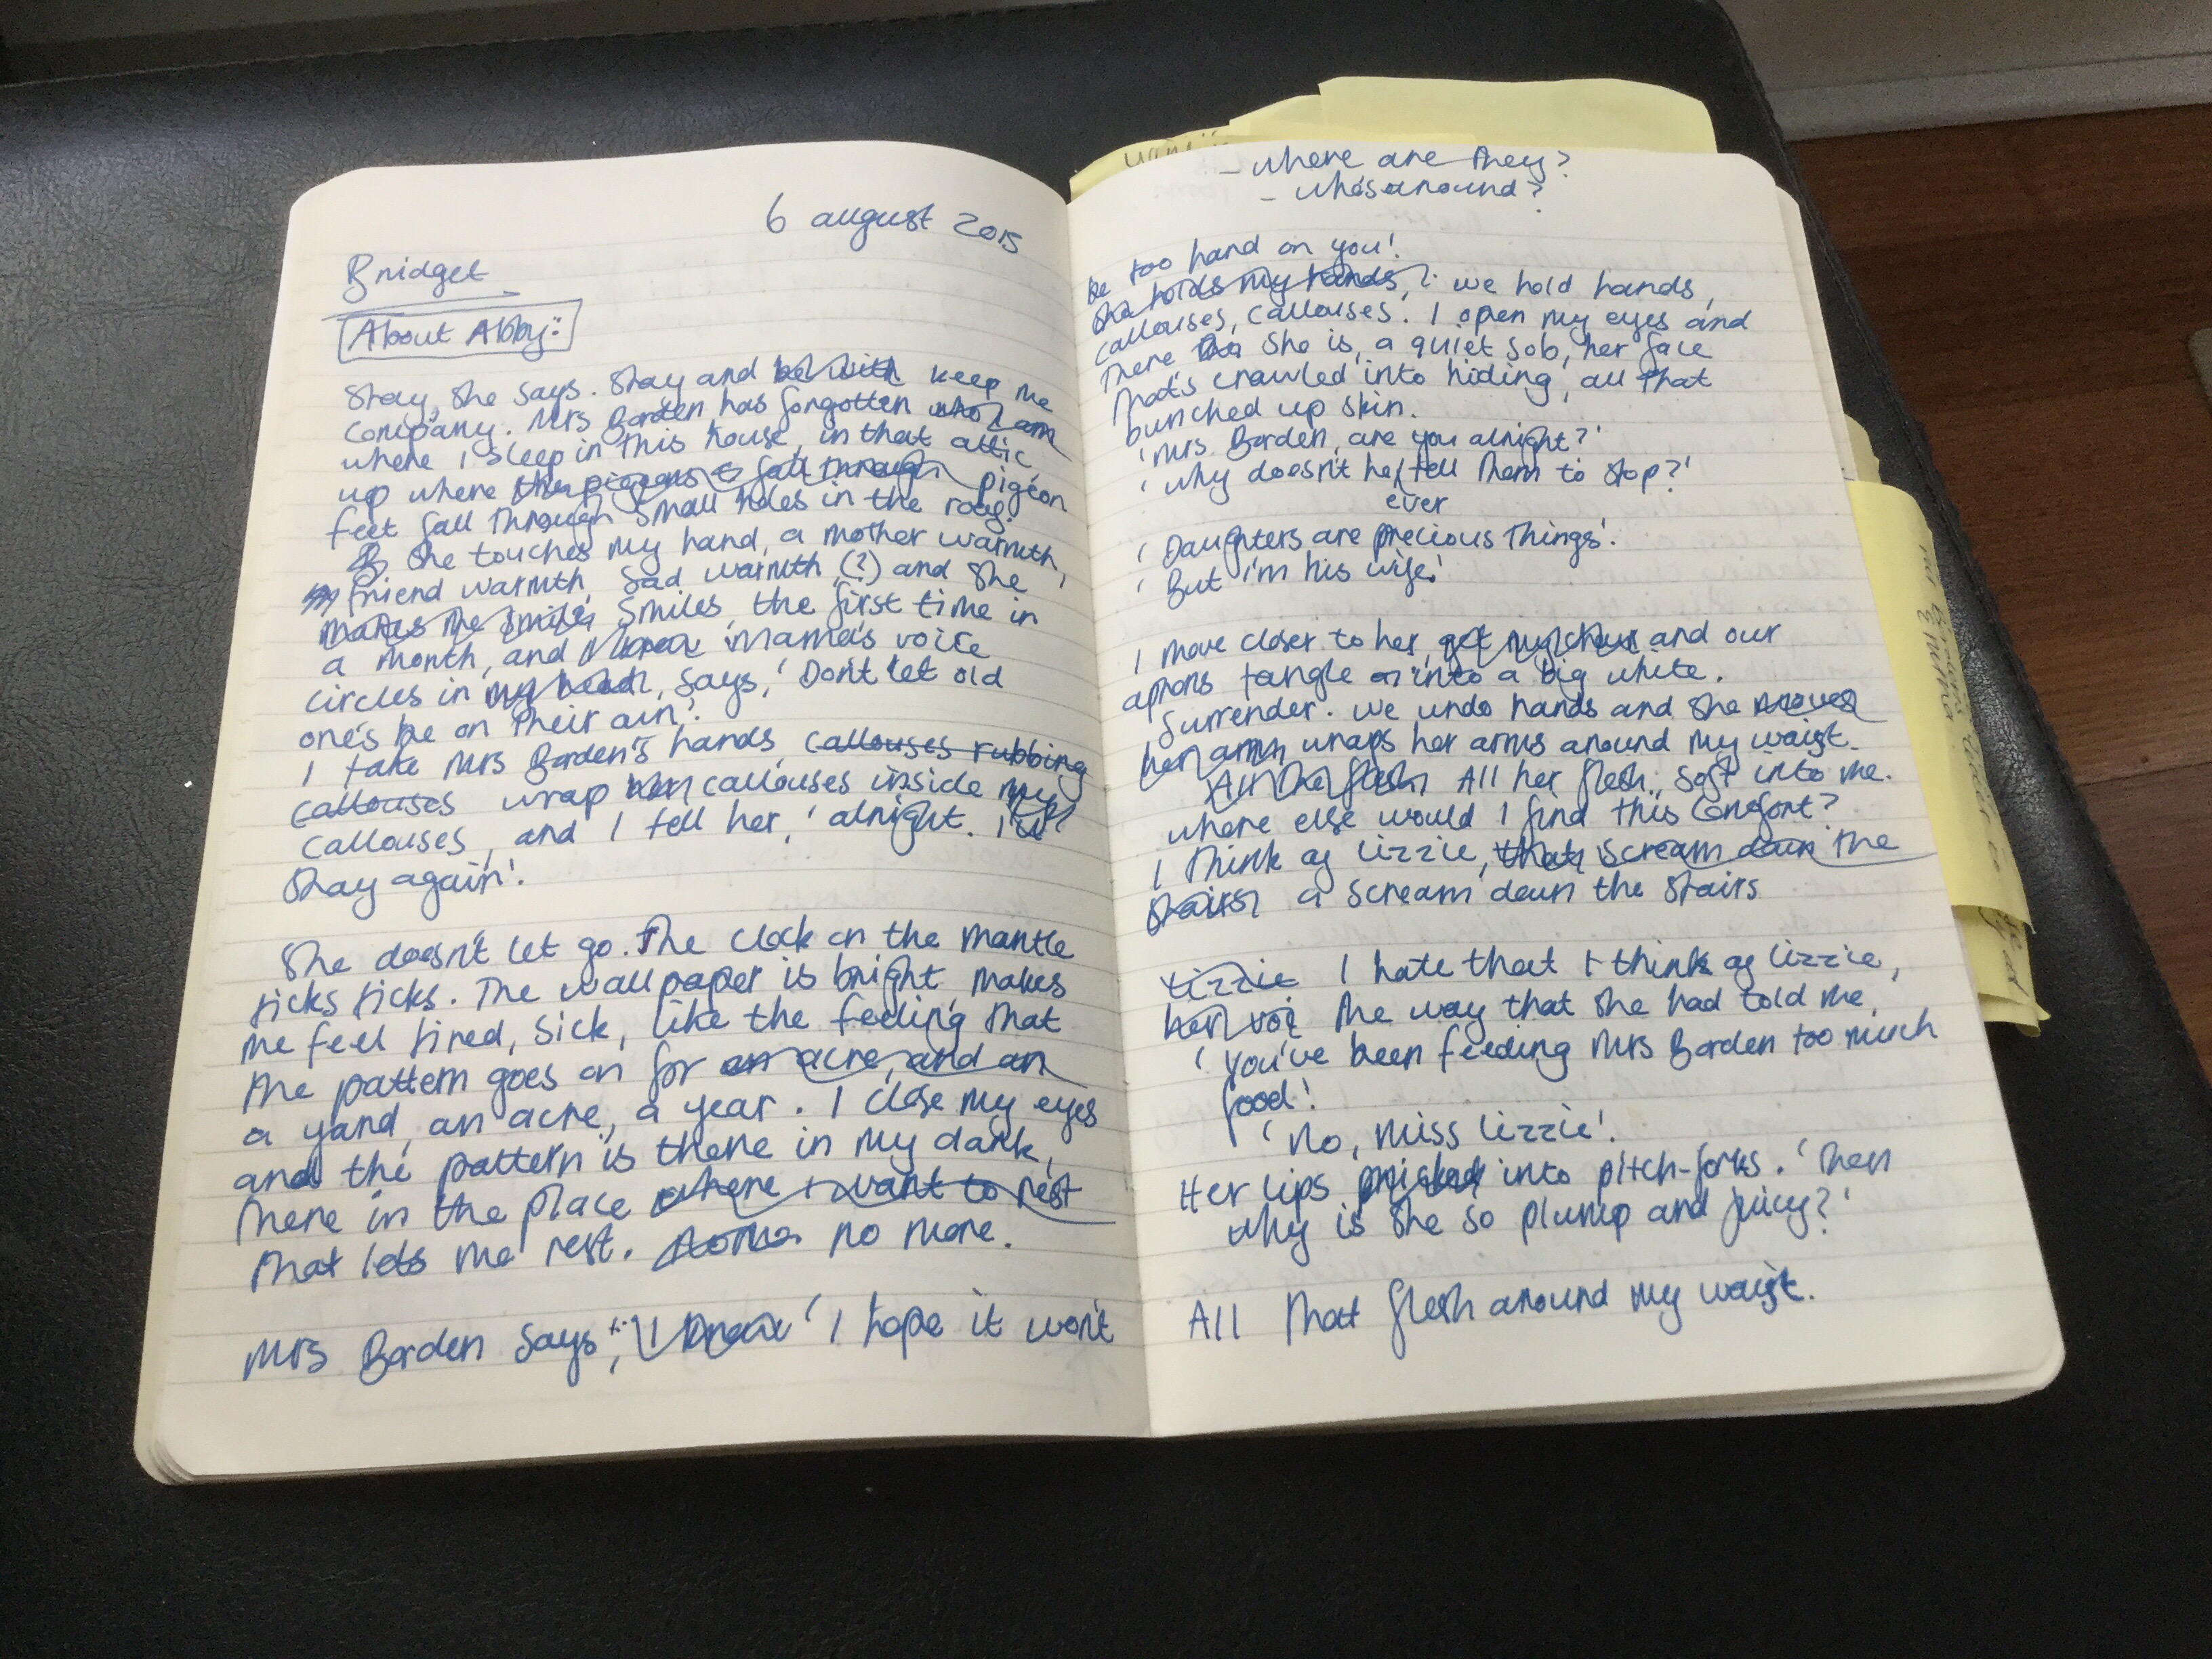 6 august 2015
Bridget
About Abby:
Stay, she says. Stay and be with keep me
company. Mrs Borden has forgotten who I am
where I sleep in this house, in that attic,
up where the pigeons fall through pigeon
feet fall through small holes in the roof.
She touches my hand, a mother warmth,
friend warmth, sad warmth (?) and she
makes me smile, smiles, the first time in
a month, and I hear mama's voice
circles in my head, says, 'Don't let old
one's be on their own'.
I take Mrs Borden's hands, callouses rubbing
callouses wrap her callouses inside my
callouses, and I tell her, 'alright. I'll
stay again'.
She doesn't let go. The clock on the mantle
ticks ticks. The wallpaper is bright, makes
me feel tired, sick, like the feeling that
the pattern goes on for an acre, and an
a yard, an acre, a year. I close my eyes
and the pattern is there in my dark,
there in the place where I want to rest
that lets me rest. no more.
Mrs Borden says, 'I know 'I hope it won't
- where are they?
- who's around?
be too hard on you'.
She holds my hands, we hold hands,
callouses, callouses. I open my eyes and
there she is, a quiet sob, her face
that's crawled into hiding, all that
bunched up skin.
'Mrs Borden, are you alright?'
'Why doesn't he tell them to stop?'
ever
'Daughters are precious things'.
'But I'm his wife'
I move closer to her, get my chair and our
aprons tangle into a big white.
Surrender. We undo hands and she moves
her arm wraps her arms around my waist.
All her flesh All her flesh, soft into me.
where else would I find this comfort?
I think of Lizzie, that scream down the
stairs a scream down the stairs
Lizzie I hate that I think of Lizzie,
her voi the way that she had told me,
'You've been feeding Mrs Borden too much
food'
'No, miss Lizzie'.
Her lips pricked into pitch-forks. 'Then
why is she so plump and juicy?'
All that flesh around my waist.